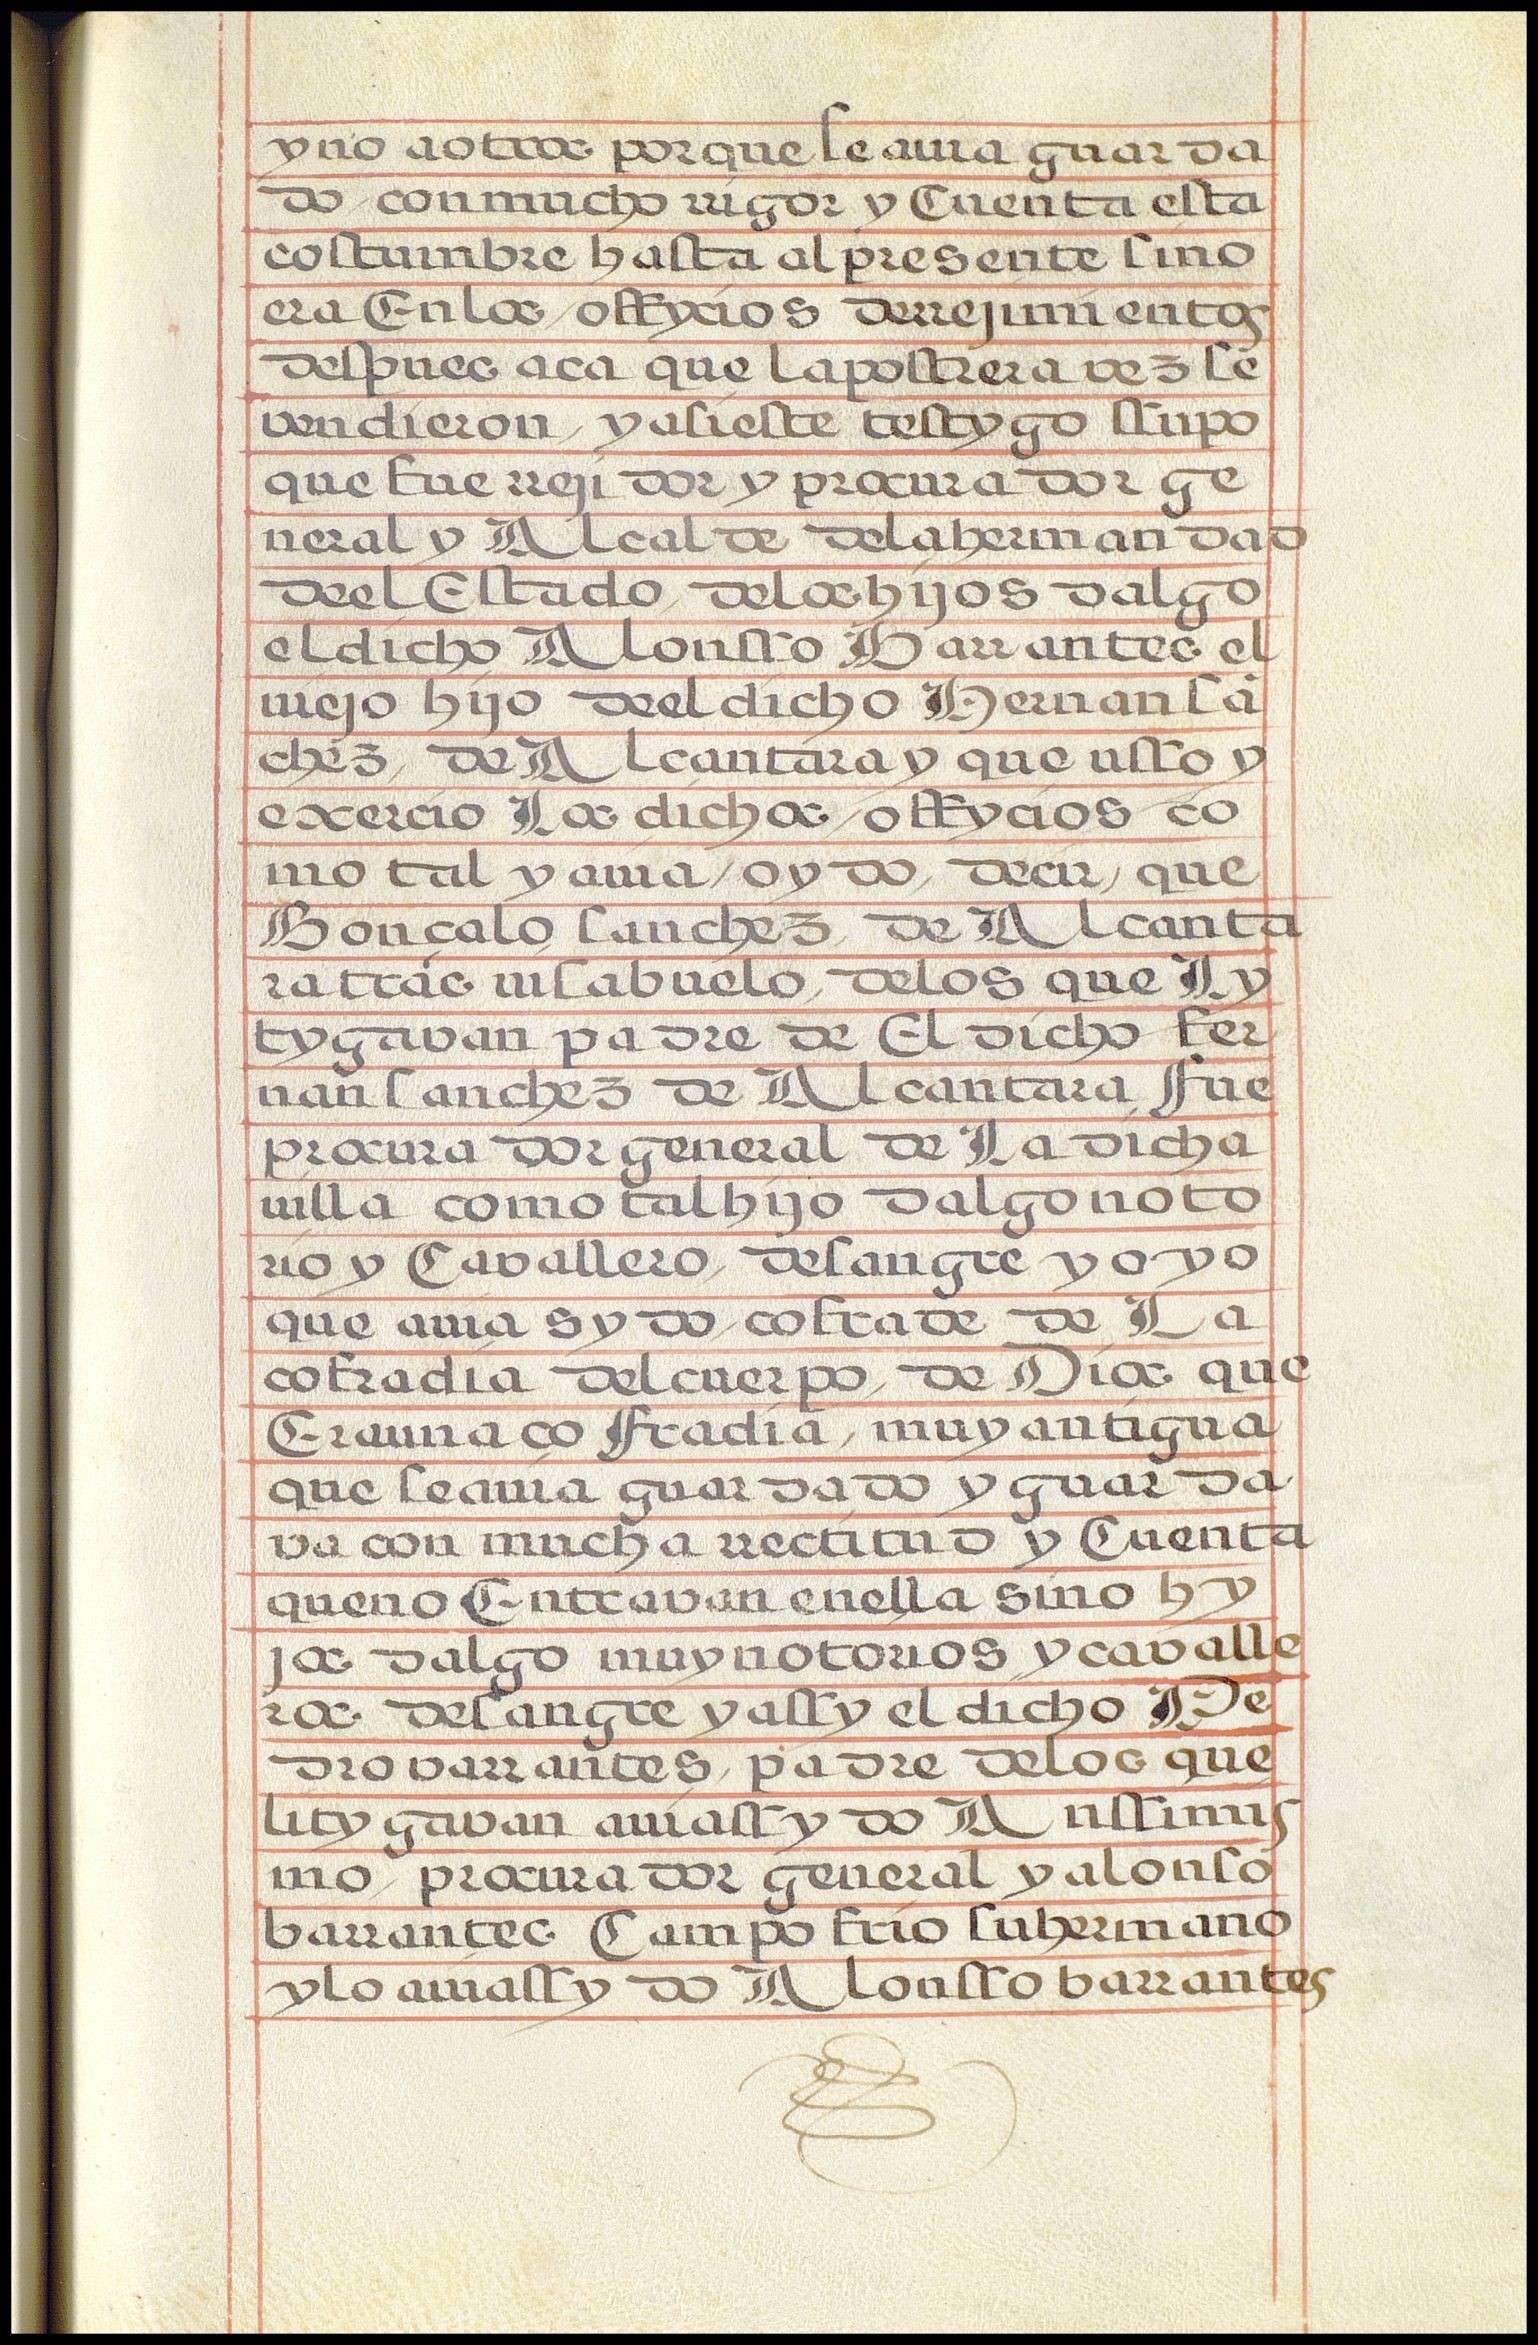 y no a otros porque se auia guarda
do con mucho rrigor y Cuenta esta
costumbre hasta al presente sino
era En los offycios de rrejimientos
despues aca que la postrera vez se
vendieron y asi este testygo ssupo
que fue rrejidor y procurador ge
neral y Alcalde de la hermandad
de el Estado de los hijos dalgo
el dicho Alonsso Barrantes el
viejo hijo de el dicho Hernan sā
chez de Alcantara y que usso y
exercio Los dichos offycios co
mo tal y auia oydo decir que
Gonçalo sanchez de Alcanta
ra tras uisabuelo de los que Ly
tygavan padre de El dicho fer
nan sanchez de Alcantara fue
procurador general de La dicha
villa como tal hijo dalgo noto
rio y Cavallero de sangre y oyo
que auia sydo cofrade de La
cofradia del cuerpo de Dios que
Era una cofradia muy antigua
que se auia guardado y guarda
va con mucha rrectitud y Cuenta
que no Entravan en ella sino hy
jos dalgo muy notorios y cavalle
ros de sangre y assy el dicho Pe
dro varrantes padre de los que
litygavan auia ssydo Anssimis
mo procurador general y alonso
barrantes Campo frio su hermano
y lo auia ssydo Alonsso barrantes